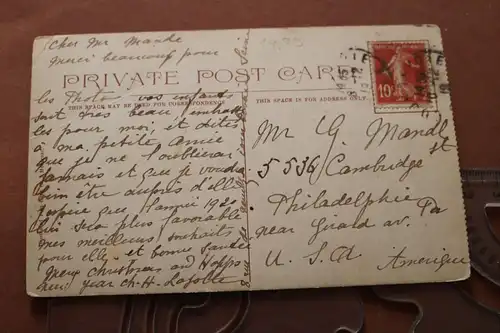 Cher Mr Mande
Merci beaucoup pour
PRIVATE POST CARD
les Photo vos enfants
THIS SPACE MAY BE USED FOR CORRESPONDENCE
THIS SPACE IS FOR ADDRESS ONLY.
sont très beau embrasse
les pour moi, et dites
à ma petite amie
que je ne l'oublierai
jamais et que je voudrai
bien être auprès d'elle
j'espère que l'année 1920
lui sera plus favorable
mes meilleurs souhaits
pour elle, et bonne santé
Merry Christmas and Happy
new year Ch. H. Lafolte
Mr G. Mandl
5536 Cambridge st
Philadelphie
near Girard av. Pa
U. S. A
Amerique
10